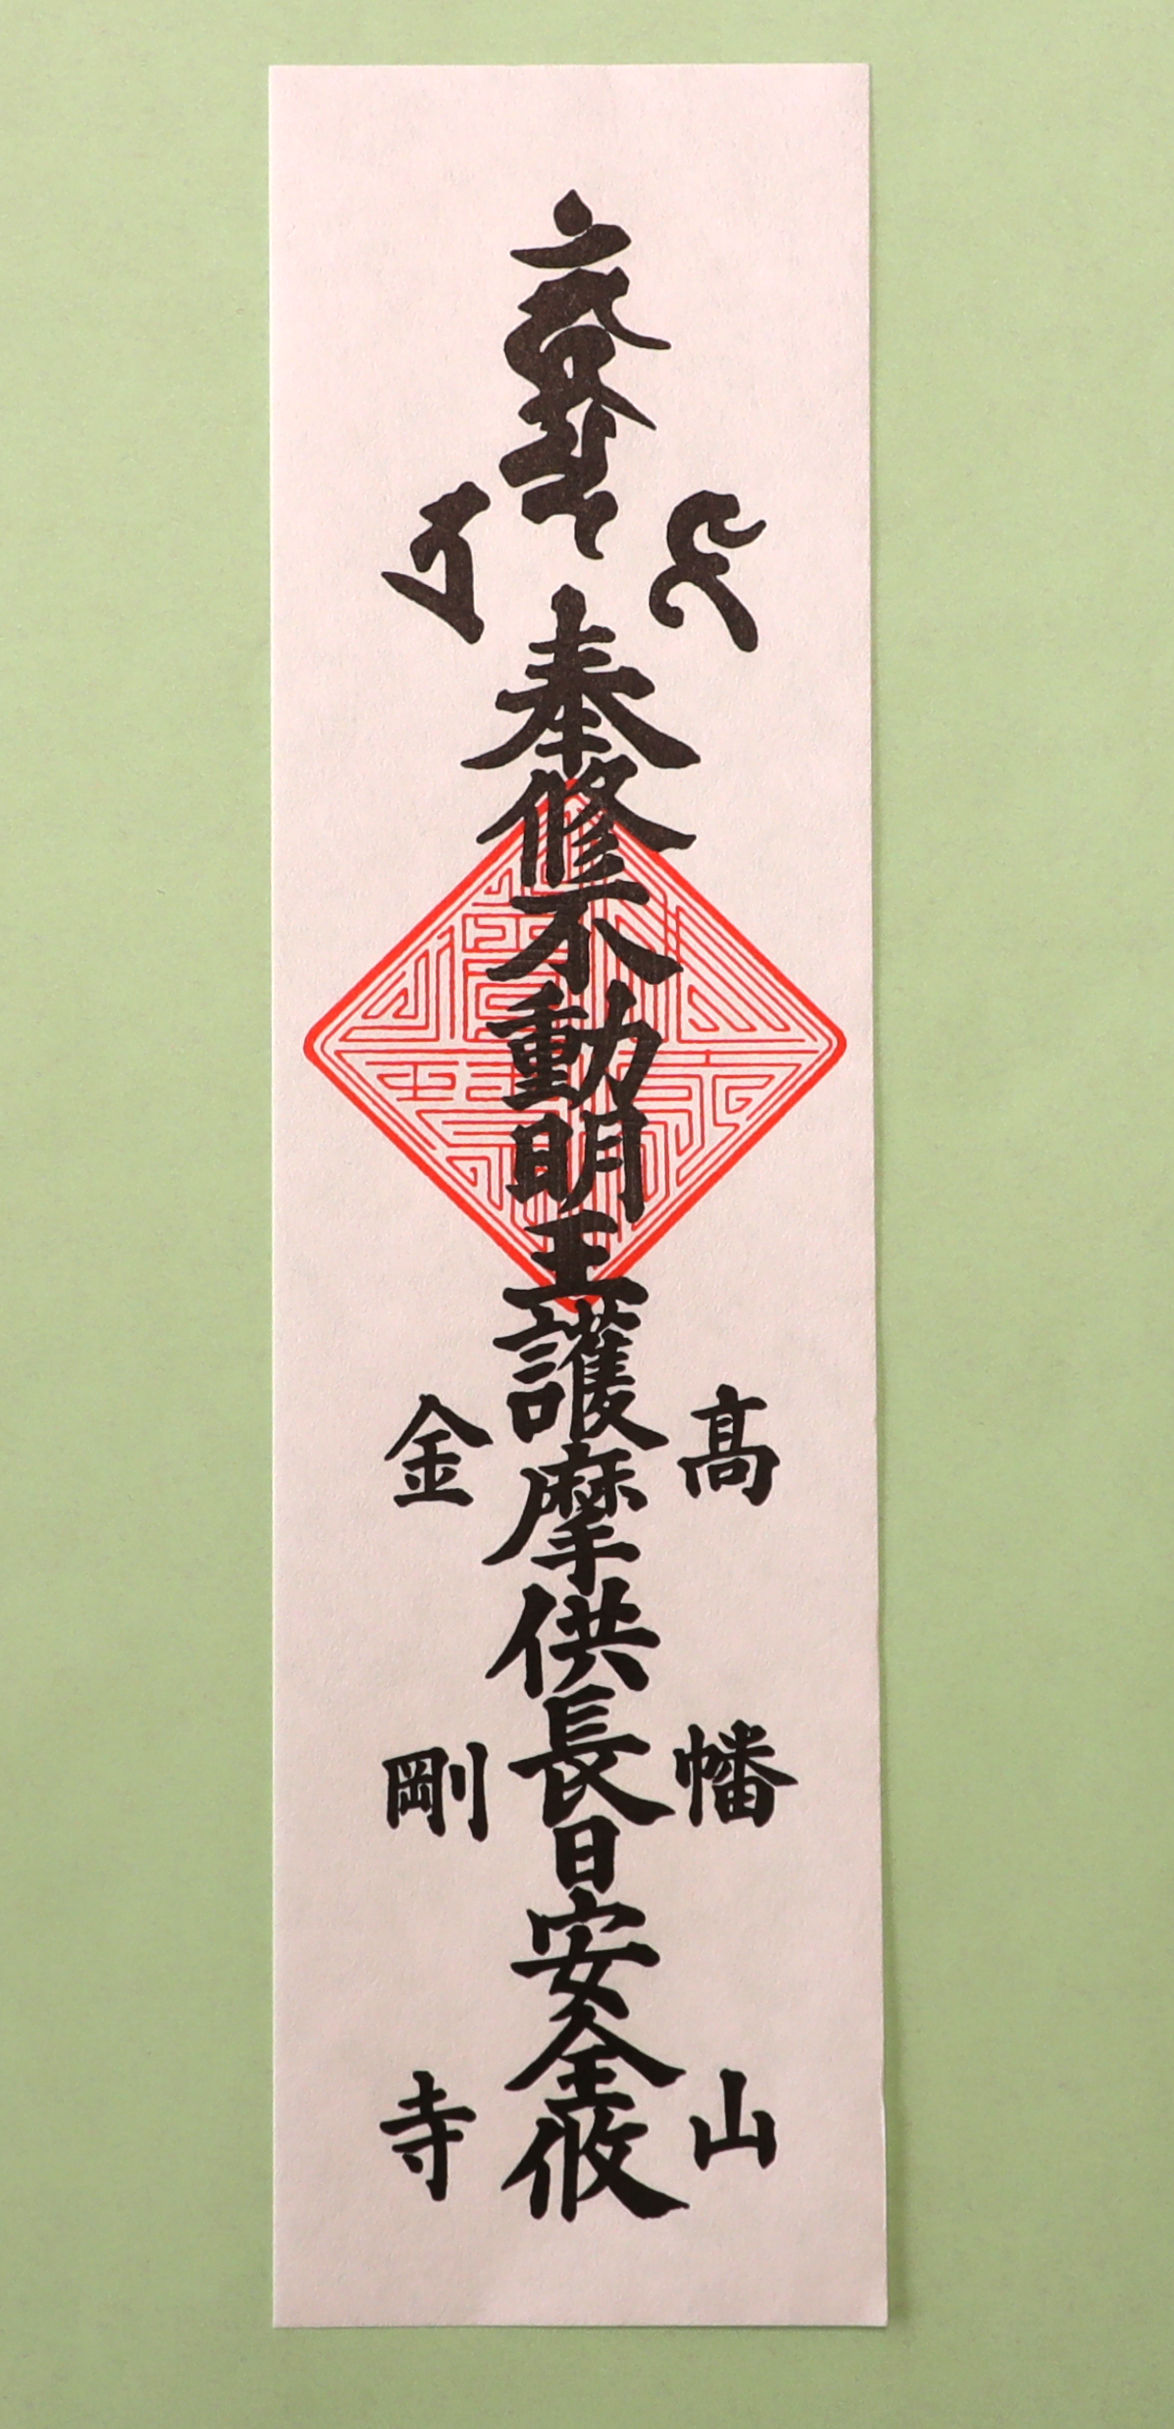 奉修不動明王護摩供長日安全攸
高幡山
金剛寺